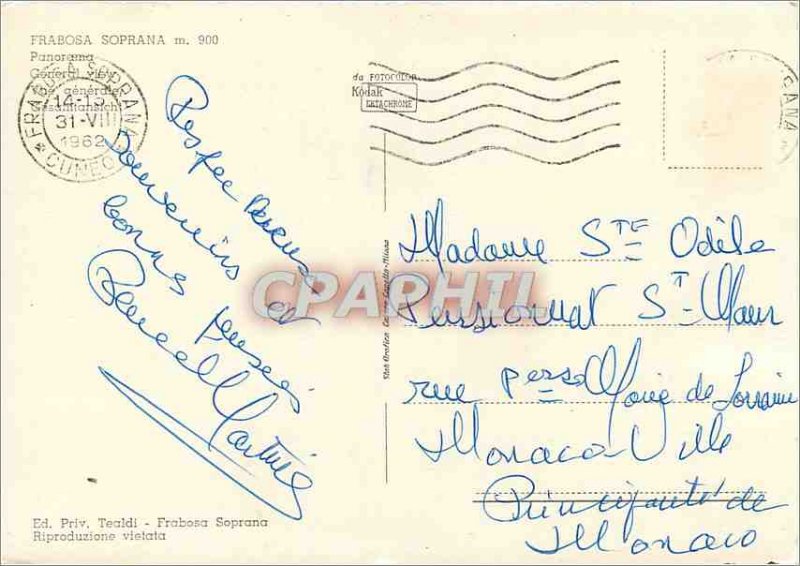 FRABOSA SOPRANA m. 900
Panorama
General view
Vue générale
Gesamtansicht
FRABOSA SOPRANA
31-VIII
1962
CUNEO
da FOTOCOLOR
Kodak
EKTACHROME
souvenirs et
bonnes pensées
CPAPHIL
Madame STE Odile
Pensionnat ST Maur
rue de Lorraine
Monaco-Ville
Principauté de
Monaco
Ed. Priv. Tealdi - Frabosa Soprana
Riproduzione vietata